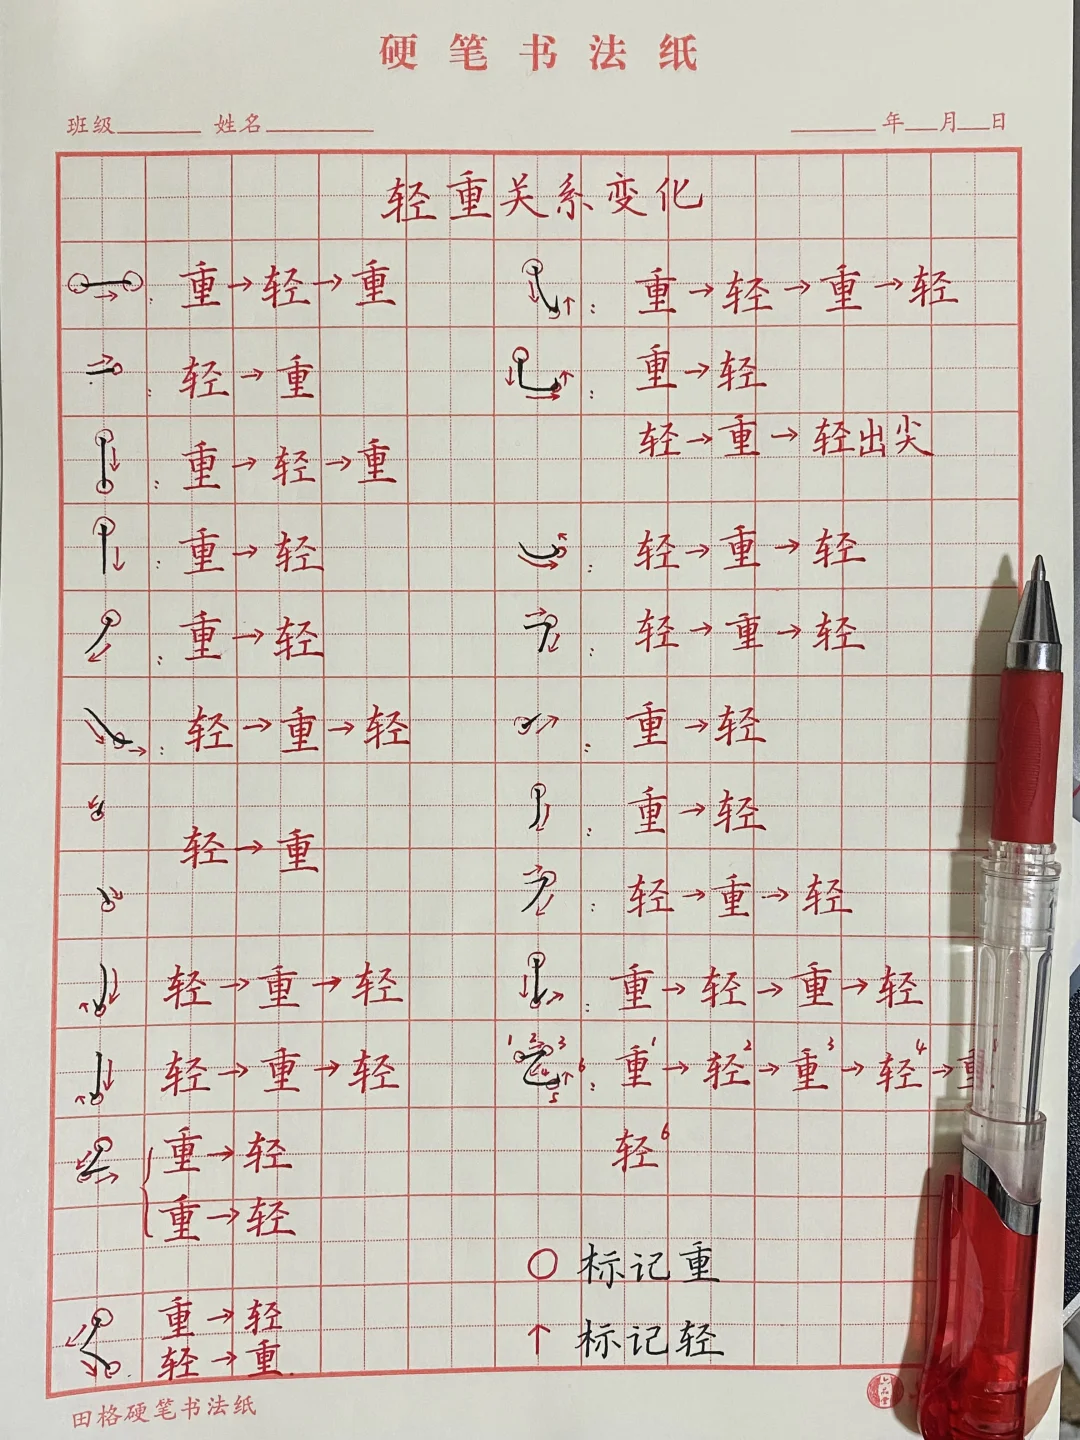 硬笔书法纸
班级 姓名 年 月 日
轻重关系变化
: 重→轻→重
: 轻→重
: 重→轻→重
: 重→轻
: 重→轻
: 轻→重→轻
轻→重
轻→重→轻
轻→重→轻
重→轻
重→轻
重→轻
轻→重
: 重→轻→重→轻
: 重→轻
轻→重→轻出尖
: 轻→重→轻
: 轻→重→轻
: 重→轻
: 重→轻
: 轻→重→轻
: 重→轻→重→轻
1 2 3 4 5 6 : 重1→轻2→重3→轻4→重
轻6
○ 标记重
↑ 标记轻
田格硬笔书法纸